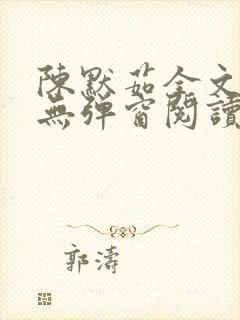 陳默茹全文
無彈窗閱讀
郭濤